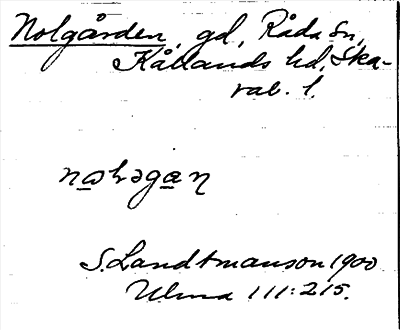 Nolgården, gd, Råda sn,
Kållands hd, Ska-
rab. l.
nɷlɘgaη
S. Landtmanson 1900
Ulma 111:215.